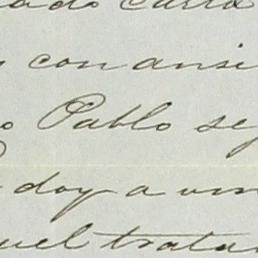 ado carta
con ansi
o Pablo se
doy a un
uel trata